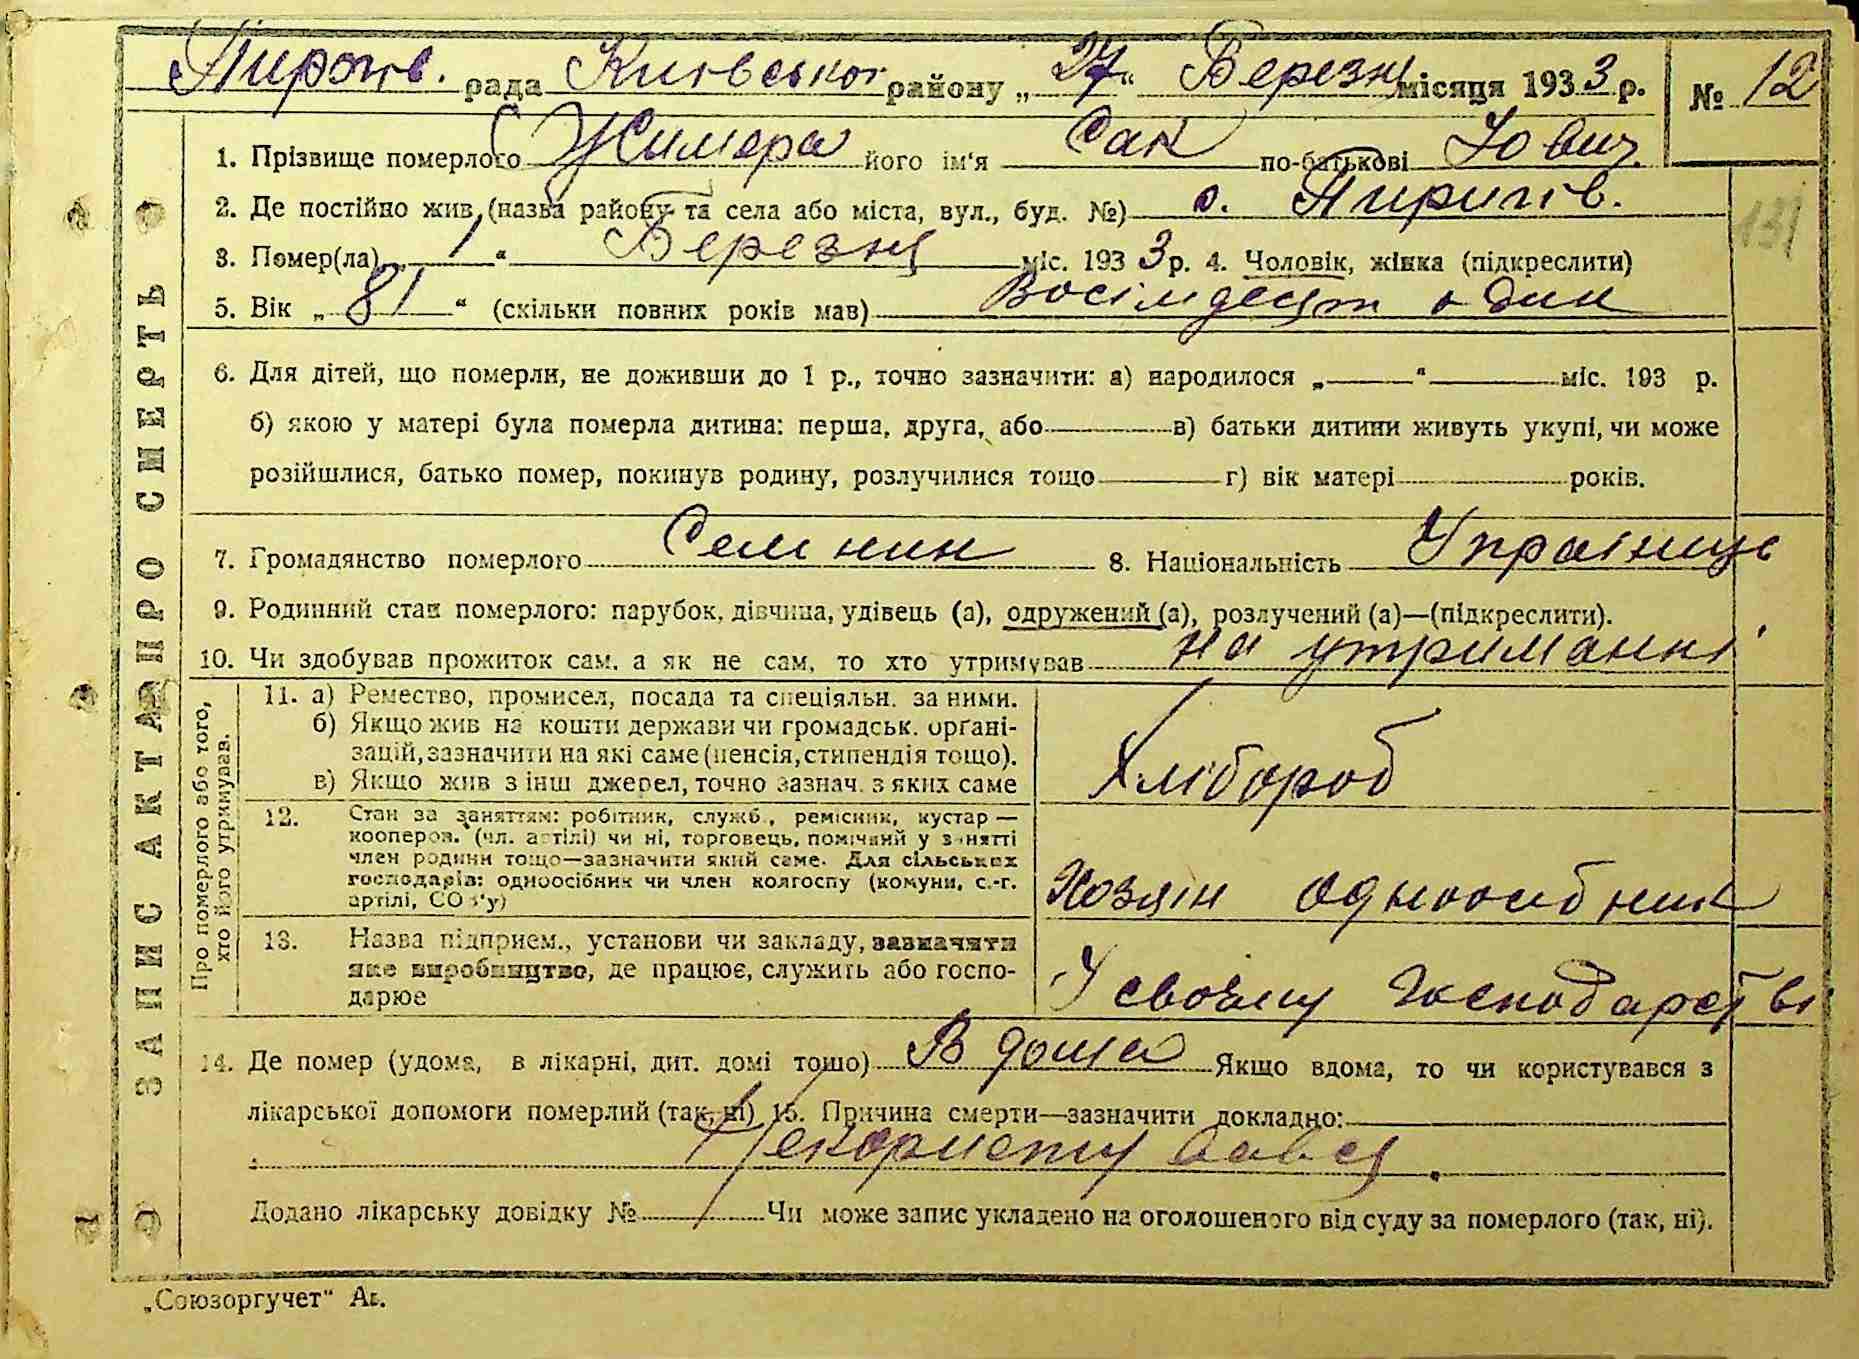 Пирогів. рада Київського району „27“ Березня місяця 1933 р. № 12
1. Прізвище померлого Жимера його ім'я Сак по-батькові Йович.
2. Де постійно жив (назва району та села або міста, вул., буд. №) с. Пирогів.
3. Помер(ла) „1“ Березня міс. 1933 р. 4. Чоловік, жінка (підкреслити)
131
5. Вік „81“ (скільки повних років мав) Восімдесят один
6. Для дітей, що померли, не доживши до 1 р., точно зазначити: а) народилося „ “ міс. 193 р.
б) якою у матері була померла дитина: перша, друга, або в) батьки дитини живуть укупі, чи може
розійшлися, батько помер, покинув родину, розлучилися тощо г) вік матері років.
7. Громадянство померлого Селянин 8. Національність Українець
9. Родинний стан померлого: парубок, дівчина, удівець (а), одружений (а), розлучений (а)—(підкреслити).
10. Чи здобував прожиток сам, а як не сам, то хто утримував на утриманні
ЗАПИС АКТА ПРО СМЕРТЬ
Про померлого або того,
хто його утримував.
11. а) Ремество, промисел, посада та спеціяльн. за ними.
б) Якщо жив на кошти держави чи громадськ. органі-
зацій, зазначити на які саме (пенсія, стипендія тощо).
в) Якщо жив з інш джерел, точно зазнач. з яких саме
Хлібороб
12. Стан за заняттям: робітник, служб., ремісник, кустар —
кооперов. (чл. артілі) чи ні, торговець, помічний у занятті
член родини тощо—зазначити який саме. Для сільських
господарів: одноосібник чи член колгоспу (комуни, с.-г.
артілі, СОЗ'у)
Хозяін одноосібник
13. Назва підприєм., установи чи закладу, зазначити
яке виробництво, де працює, служить або госпо-
дарює
У своєму господарстві
14. Де помер (удома, в лікарні, дит. домі тощо) В дома Якщо вдома, то чи користувався з
лікарської допомоги померлий (так, ні) 15. Причина смерти—зазначити докладно:
Некористувався.
Додано лікарську довідку № Чи може запис укладено на оголошеного від суду за померлого (так, ні).
„Союзоргучет“